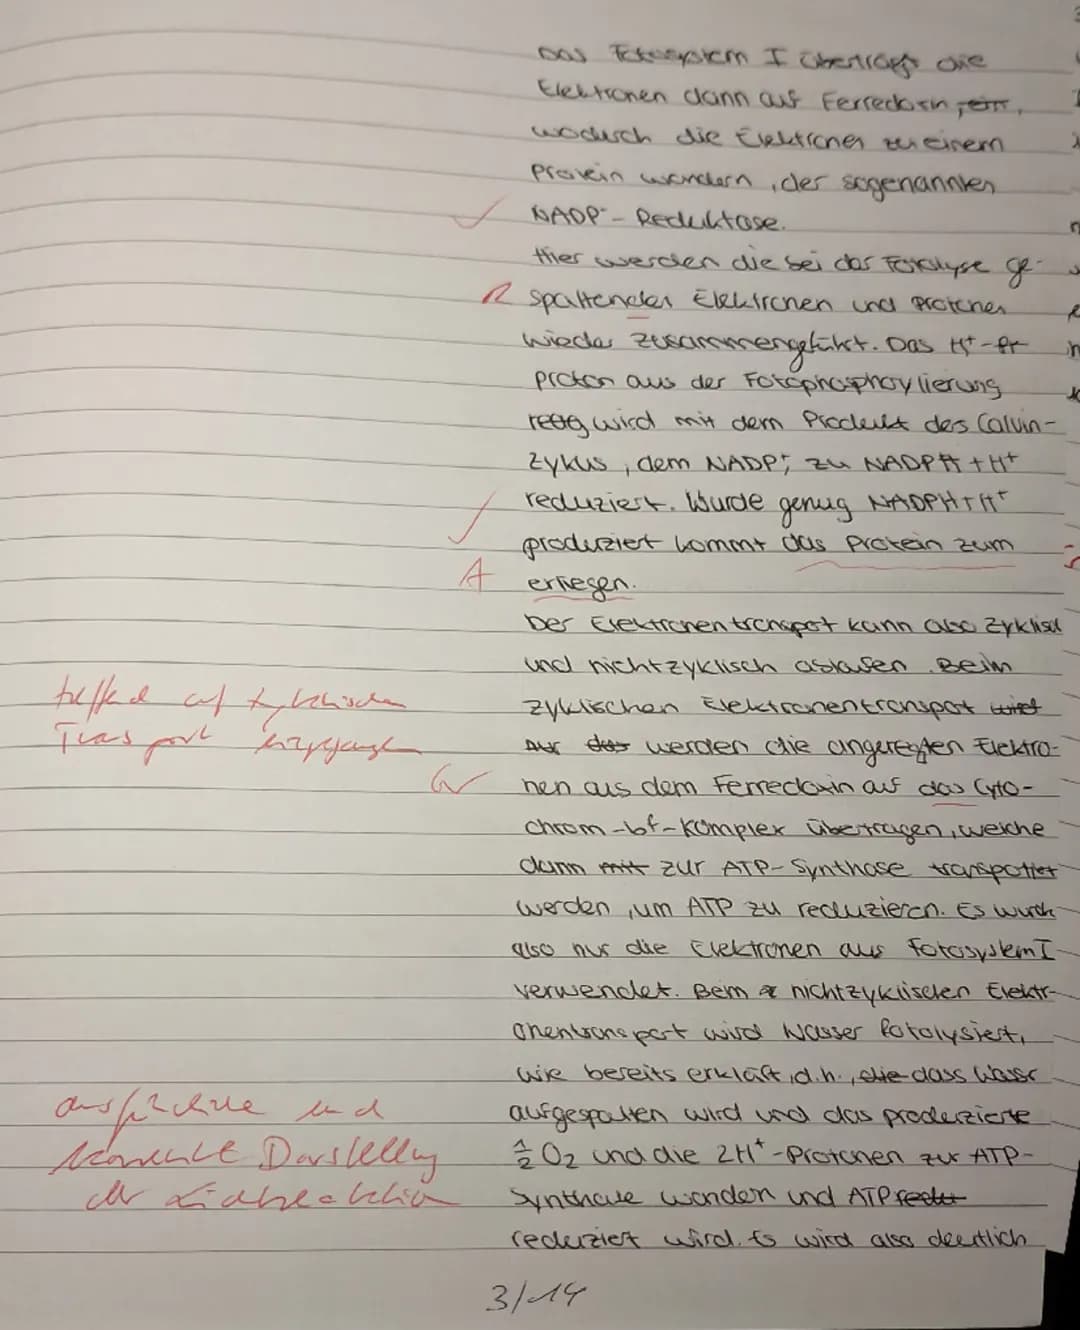 Das Fotosystem I überträgt die
Elektronen dann auf Ferredoxin,
wodurch die Elektronen zu einem
Protein wandern, der sogenannten
NADP⁻-Reduktase.
Hier werden die bei das Fotolyse ge-
R spaltenden Elektronen und Protonen
wieder zusammengeführt. Das H⁺-Pr
Proton aus der Fotophosphorylierung
wird mit dem Produkt des Calvin-
Zykus, dem NADP⁺, zu NADPH + H⁺
reduziert. Wurde genug NADPH+H⁺
produziert kommt das Protein zum
A erliegen.
Der Elektronentranspot kann also zyklisch
und nichtzyklisch ablaufen. Beim
treffend auf zyklischen
zyklischen Elektronentranspot wird
Transport eingegangen
Aus das werden die angeregten Elektro-
Gr nen aus dem Ferredoxin auf das Cyto-
chrom-bf-Komplex übertragen, welche
dann mit zur ATP-Synthase transpotiet
werden, um ATP zu reduzieren. Es wurden
also nur die Elektronen aus Fotosystem I
verwendet. Beim nichtzyklischen Elektr-
onentransport wird Wasser fotolysiert,
wie bereits erklärt, d.h., die dass Wasser
ausführliche und
aufgespalten wird und das produzierte
korrekte Darstellung
½ O₂ und die 2H⁺-Protonen zur ATP-
der Lichtreaktion
Synthase wandern und ATP redu
reduziert wird. Es wird also deutlich
3/14